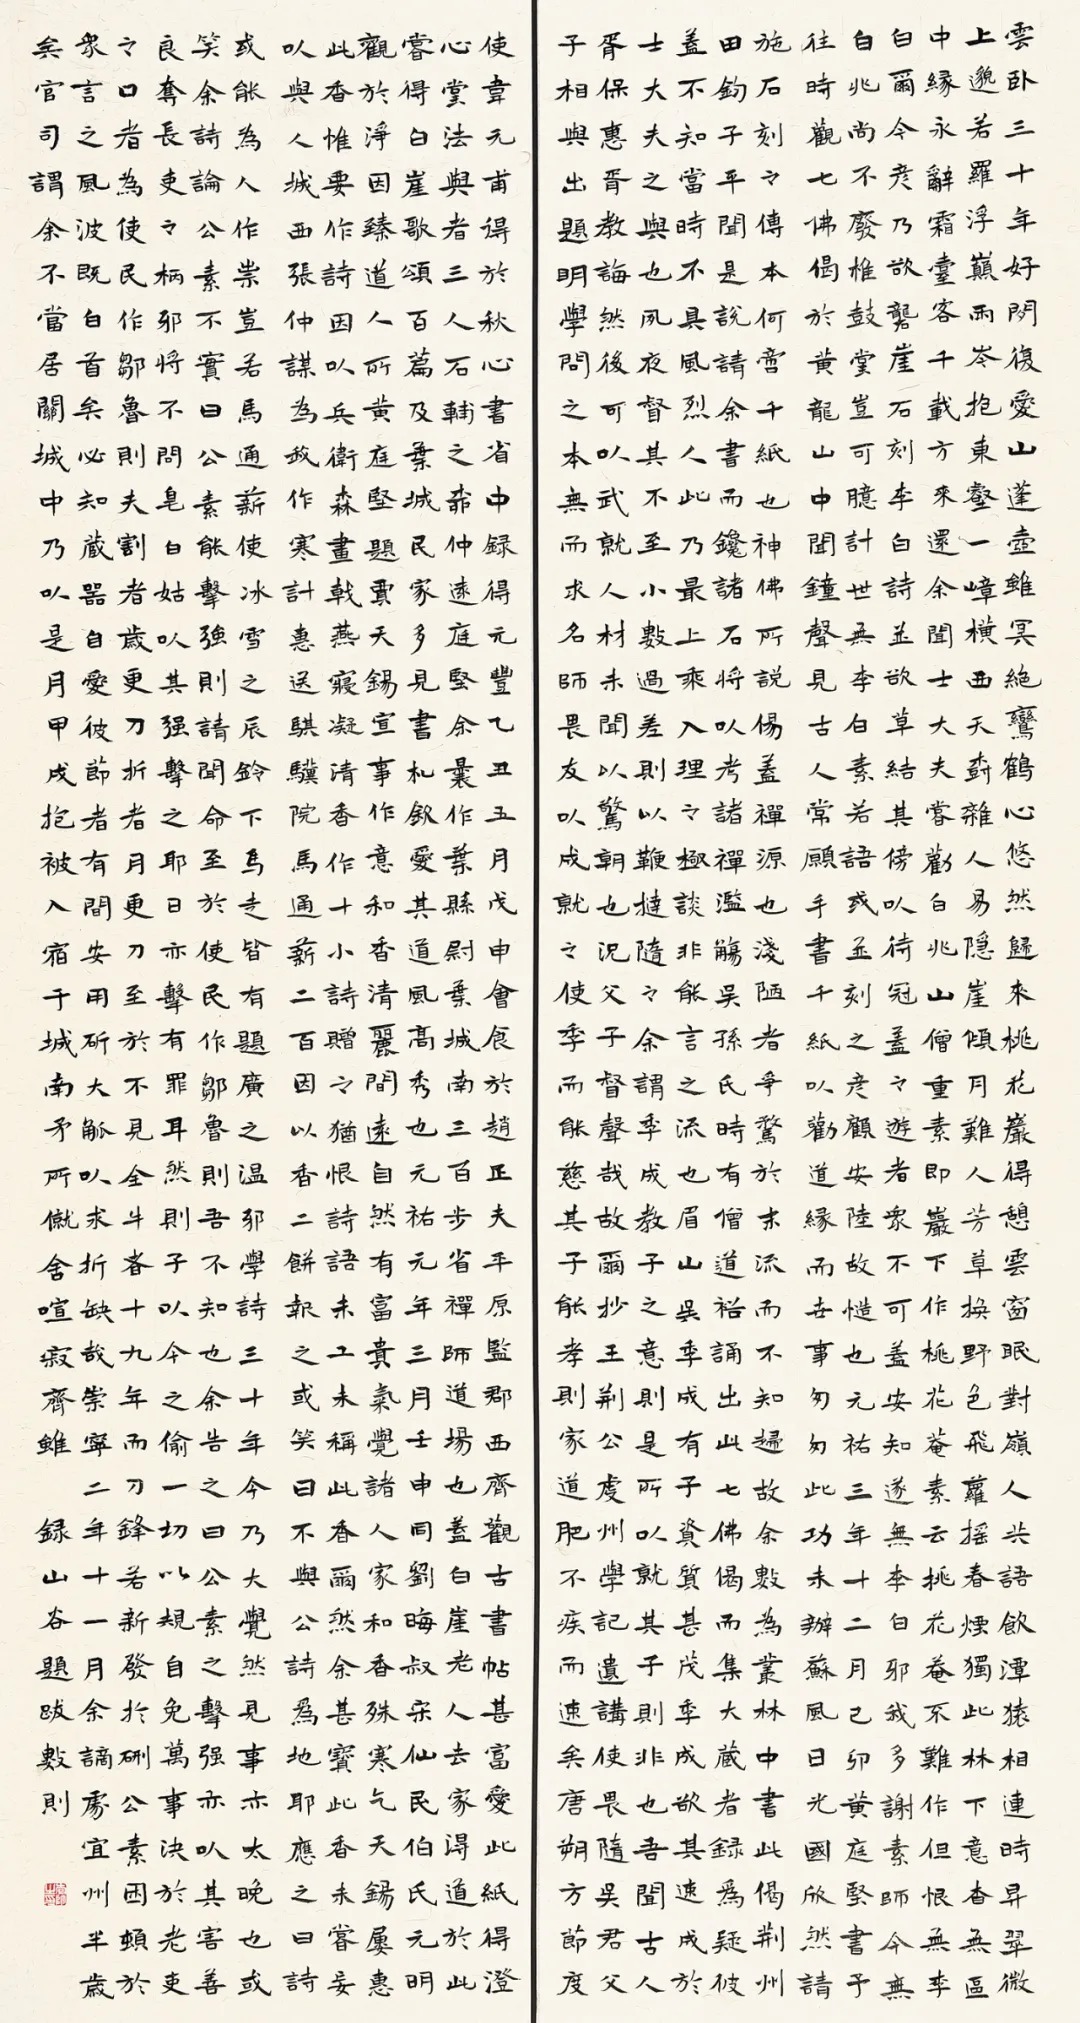 雲卧三十年好閑復愛山蓬壺雖冥絶鸞鶴心悠然歸來桃花巖得憩雲窗眠對嶺人共語飲潭猿相連時昇翠微
上邈若羅浮巔兩岑抱東壑一嶂橫西天樹雜人易隱崖傾月難人芳草換野色飛蘿搖春煙獨此林下意杳無區
中緣永辭霜臺客千載方來還余聞士大夫嘗勸白兆山僧重素即巖下作桃花菴素云桃花菴不難作但恨無李
白爾今彦乃欲礱崖石刻李白詩並欲草結其傍以待冠蓋々遊者衆不可蓋安知遂無李白邪我多謝素師今無
白兆尚不廢椎鼓堂豈可臆計世無李白素若語或並刻之彦顧安陸故慥也元祐三年十二月己卯黄庭堅書予
往時觀七佛偈於黄龍山中聞鐘聲見古人常願手書千紙以勸道緣而世事匆匆此功未辦蘇風日光國欣然請
施石刻々傳本何啻千紙也神佛所説偈蓋禪源也淺陋者爭驁於末流而不知歸故余數為叢林中書此偈荆州
田鈞子平聞是説請余書而鑱諸石將以考諸禪濫觴吳孫氏時有僧道裕誦出此七佛偈而集大藏者録為疑彼
蓋不知當時不具風烈人此乃最上乘入理々極談非能言之流也眉山吳季成有子資質甚茂季成欲其速成於
士大夫之與也夙夜督其不至小數過差則以鞭撻隨々余謂季成教子之意則是所以就其子則非也吾聞古人
胥保惠胥教誨然後可以武就人材未聞以驚朝也況父子督聲哉故爾抄王荆公虔州學記遺講使畏隨吳君父
子相與出題明學問之本無而求名師畏友以成就之使季而能慈其子能孝則家道肥不疾而速矣唐朔方節度
使韋元甫得於秋心書省中録得元豐乙丑五月戊申會食於趙正夫平原監郡西齊觀古書帖甚富愛此紙得澄
心堂法與者三人石輔之柰仲遠庭堅余曩作葉縣尉葉城南三百步省禪師道場也蓋白崖老人去家得道於此
嘗得白崖歌頌百篇及葉城民家多見書札欽愛其道風高秀也元祐元年三月壬申同劉晦叔宋仙民伯氏元明
觀於淨因臻道人所黄庭堅題賈天錫宣事作意和香清麗閒遠自然有富貴氣覺諸人家和香殊寒乞天錫屢惠
此香惟要作詩因以兵衛森畫戟燕寢凝清香作十小詩贈々猶恨詩語未工未稱此香爾然余甚寶此香未嘗妄
以與人城西張仲謀為政作寒計惠送騏驥院馬通薪二百因以香二餅報之或笑曰不與公詩為地耶應之曰詩
或能為人作祟豈若馬通薪使冰雪之辰鈴下馬走皆有題廣之温邪學詩三十年今乃大覺然見事亦太晚也或
笑余詩論公素不實曰公素能擊強則請聞命至於使民作鄒魯則吾不知也余告之曰公素之擊强亦以其害善
良奪長吏々柄邪將不問皂白姑以其强擊之耶曰亦擊有罪耳然則子以今之偷一切以規自免萬事決於老吏
々口者為使民作鄒魯則夫割者歲更刀折者月更刀至於不見全牛者十九年而刀鋒若新發於硎公素困頓於
衆言之風波既白首矣必知藏器自愛彼節者有間安用斫大觚以求折缺哉崇寧二年十一月余謫處宜州半歲
矣官司謂余不當居關城中乃以是月甲戌抱被入宿于城南予所僦舍喧寂齊雖 録山谷題跋數則